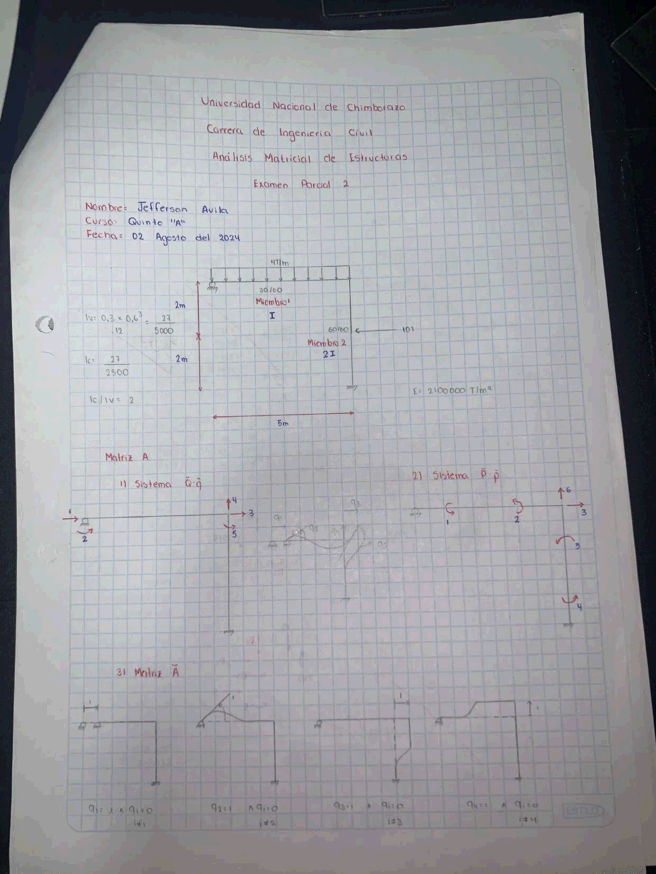 Universidad Nacional de Chimborazo
Carrera de Ingeniería Civil
Análisis Matricial de Estructuras
Examen Parcial 2
Nombre: Jefferson Avila
Curso: Quinto "A"
Fecha: 02 Agosto del 2024
4T/m
30/60
Miembro 1
I
2m
Iv= 0.3 × 0,6³ = 27
12 5000
60/60
10T
Miembro 2
2I
Ic= 27
2500
2m
Ic/Iv= 2
E= 2100000 T/m²
5m
Matriz A
1) Sistema Q-q
2) Sistema P p
1
2
3
4
5
1
2
3
4
5
6
3) Matriz A
1
1
1
1
q1=1 ∧ qi=0
i≠1
q2=1 ∧ qi=0
i≠2
q3=1 ∧ qi=0
i≠3
q4=1 ∧ qi=0
i≠4